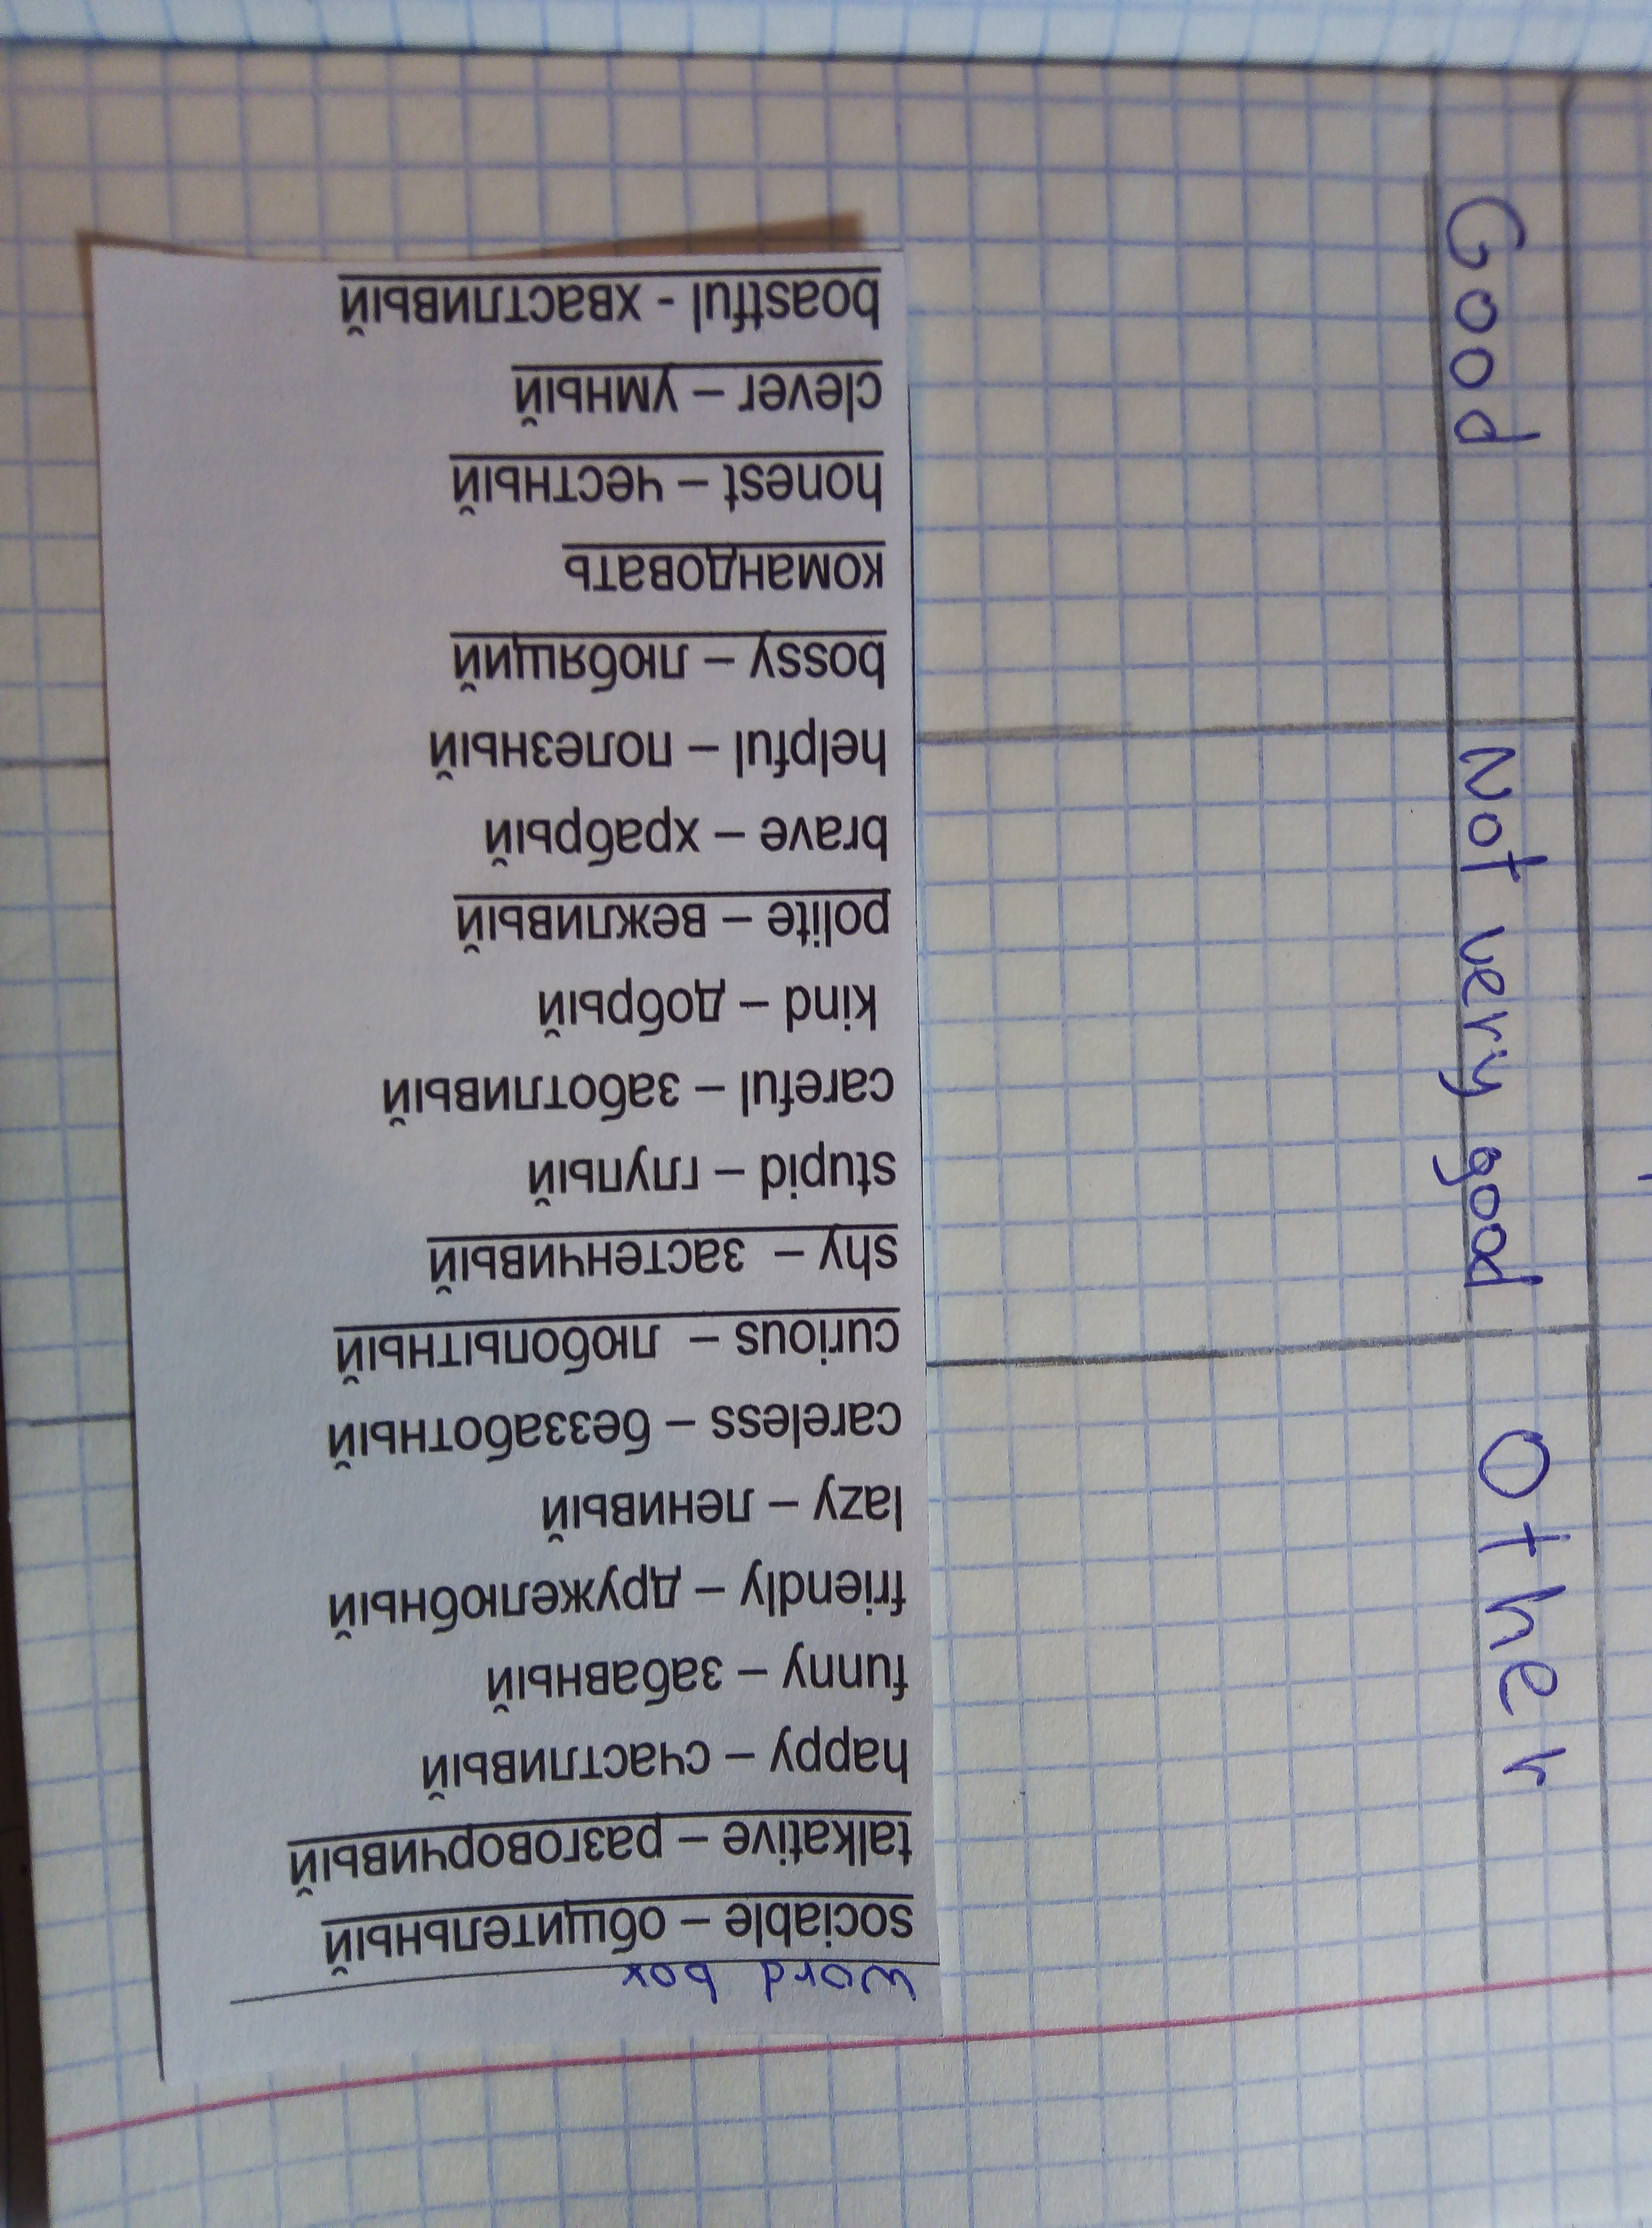 word box
sociable – общительный
talkative – разговорчивый
happy – счастливый
funny – забавный
friendly – дружелюбный
lazy – ленивый
careless – беззаботный
curious – любопытный
shy – застенчивый
stupid – глупый
careful – заботливый
kind – добрый
polite – вежливый
brave – храбрый
helpful – полезный
bossy – любящий
командовать
honest – честный
clever – умный
boastful - хвастливый
Good
Not very good
Other